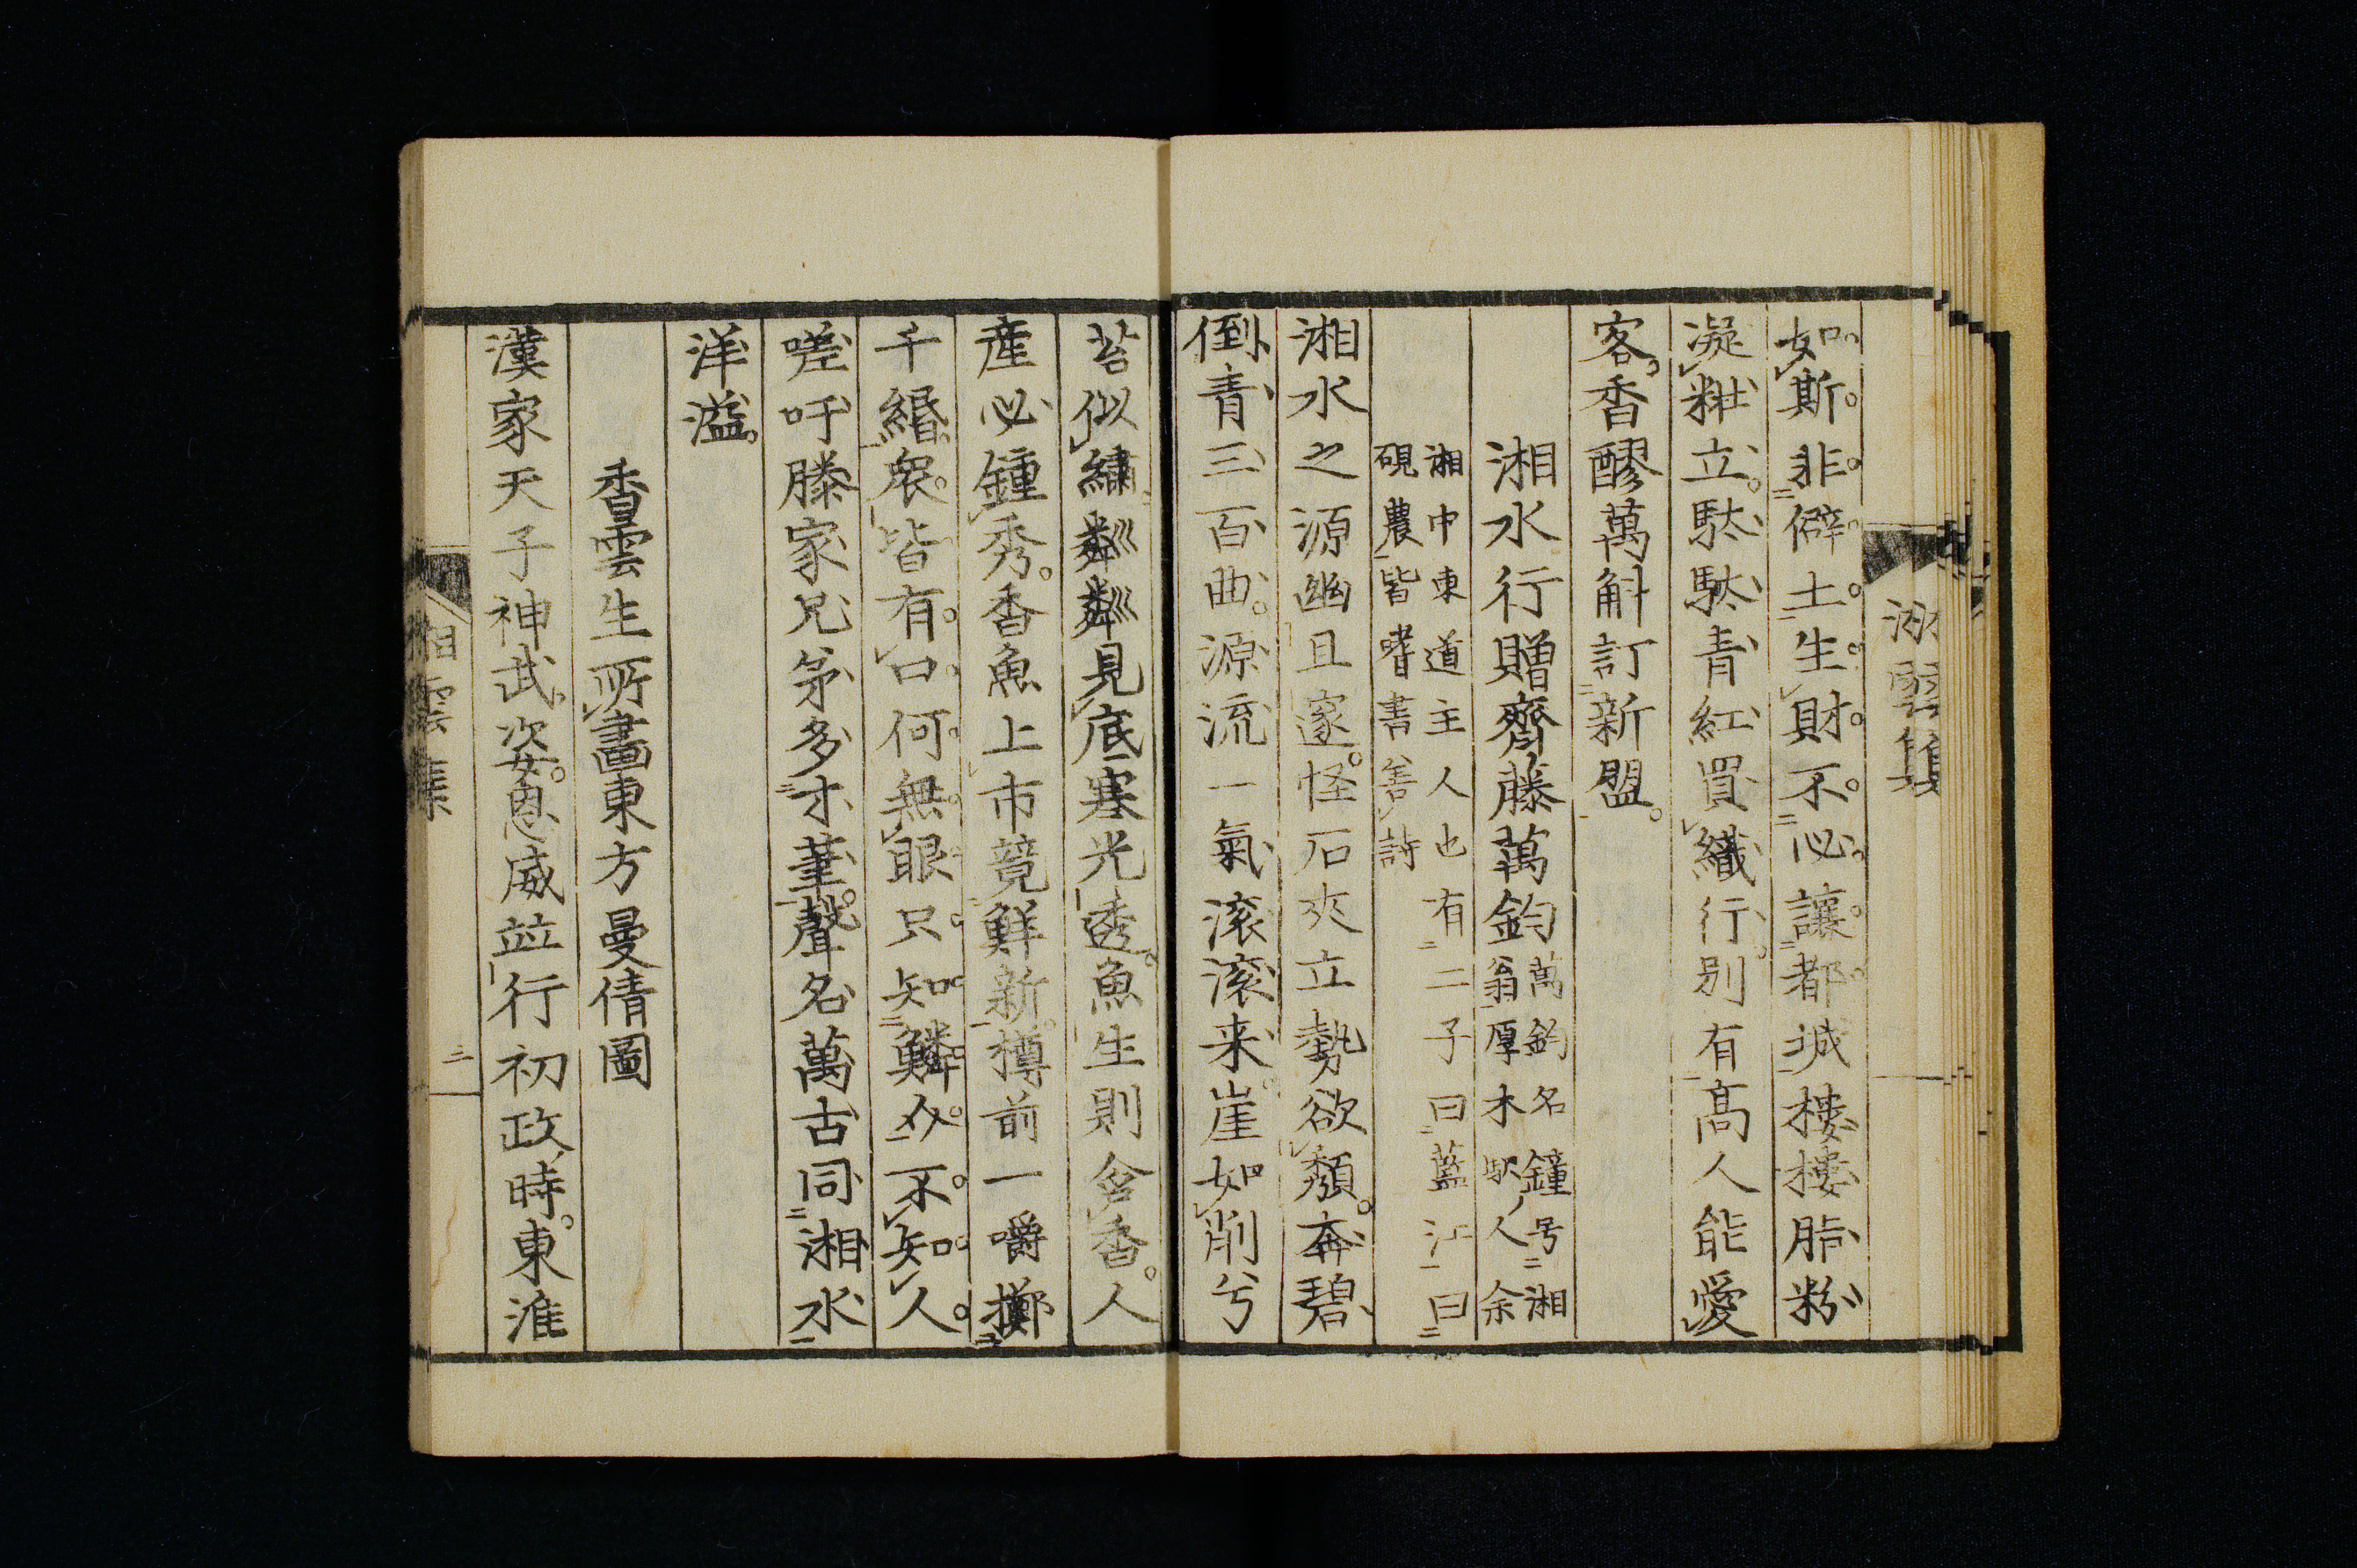 如斯。非僻土。生財。不必讓都城樓樓脂粉
凝粧立。駄駄青紅買織行。別有高人能愛
客。香醪萬斛訂新盟。
湘水行贈齊藤萬鈞
萬鈞名鐘号湘
翁厚木駅人余
湘中東道主人也有二子曰藍江曰
硯農皆嗜書善詩
湘水之源幽且邃。怪石夾立勢欲頽。奔碧
倒青三百曲。源流一氣滚滚来。崖如削兮
苔似繍。粼粼見底寒光透。魚生則含香。人
産必鍾秀。香魚上市競鮮新。樽前一嚼擲
千緡。衆皆有口何無眼。只知鱗介不知人。
嗟吁滕家兄弟多才華。聲名萬古同湘水
洋溢。
香雲生所畫東方曼倩圖
漢家天子神武姿。恩威並行初政時。東淮
湘雲集
三